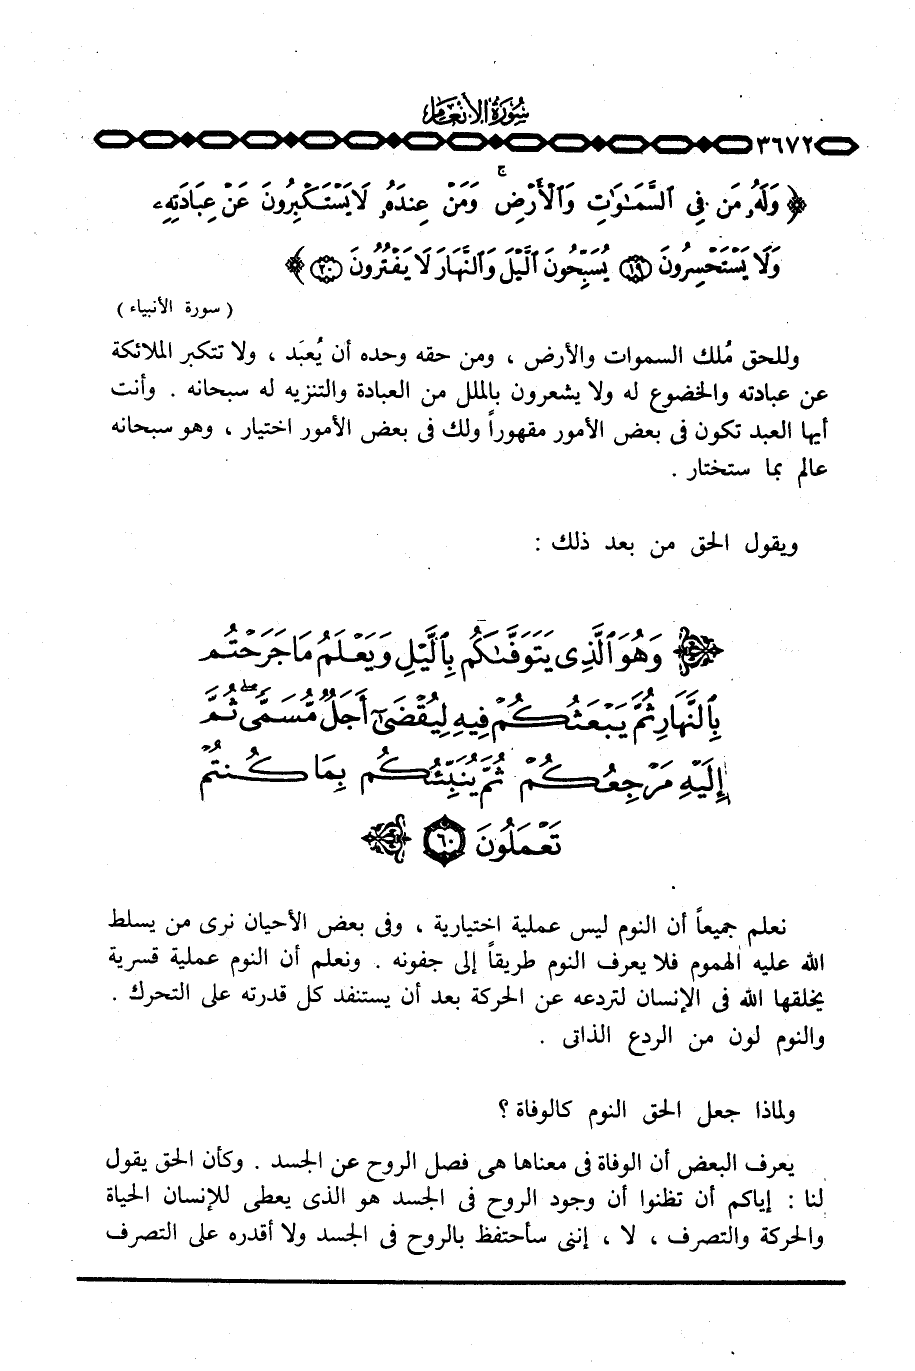 سُورَةُ الأَنْعَام
٣٦٧٢
﴿ وَلَهُۥ مَن فِى ٱلسَّمَٰوَٰتِ وَٱلْأَرْضِ ۚ وَمَنْ عِندَهُۥ لَا يَسْتَكْبِرُونَ عَنْ عِبَادَتِهِۦ
وَلَا يَسْتَحْسِرُونَ ﴿١٩﴾ يُسَبِّحُونَ ٱلَّيْلَ وَٱلنَّهَارَ لَا يَفْتُرُونَ ﴿٢٠﴾ ﴾
( سورة الأنبياء )
وللحق مُلك السموات والأرض ، ومن حقه وحده أن يُعبَد ، ولا تتكبر الملائكة
عن عبادته والخضوع له ولا يشعرون بالملل من العبادة والتنزيه له سبحانه . وأنت
أيها العبد تكون فى بعض الأمور مقهوراً ولك فى بعض الأمور اختيار ، وهو سبحانه
عالم بما ستختار .
ويقول الحق من بعد ذلك :
﴿ وَهُوَ ٱلَّذِى يَتَوَفَّىٰكُم بِٱلَّيْلِ وَيَعْلَمُ مَا جَرَحْتُم
بِٱلنَّهَارِ ثُمَّ يَبْعَثُكُمْ فِيهِ لِيُقْضَىٰٓ أَجَلٌ مُّسَمًّى ۖ ثُمَّ
إِلَيْهِ مَرْجِعُكُمْ ثُمَّ يُنَبِّئُكُم بِمَا كُنتُمْ
تَعْمَلُونَ ﴿٦٠﴾ ﴾
نعلم جميعاً أن النوم ليس عملية اختيارية ، وفى بعض الأحيان نرى من يسلط
الله عليه الهموم فلا يعرف النوم طريقاً إلى جفونه . ونعلم أن النوم عملية قسرية
يخلقها الله فى الإنسان لتردعه عن الحركة بعد أن يستنفد كل قدرته على التحرك .
والنوم لون من الردع الذاتى .
ولماذا جعل الحق النوم كالوفاة ؟
يعرف البعض أن الوفاة فى معناها هى فصل الروح عن الجسد . وكأن الحق يقول
لنا : إياكم أن تظنوا أن وجود الروح فى الجسد هو الذى يعطى للإنسان الحياة
والحركة والتصرف ، لا ، إننى سأحتفظ بالروح فى الجسد ولا أقدره على التصرف